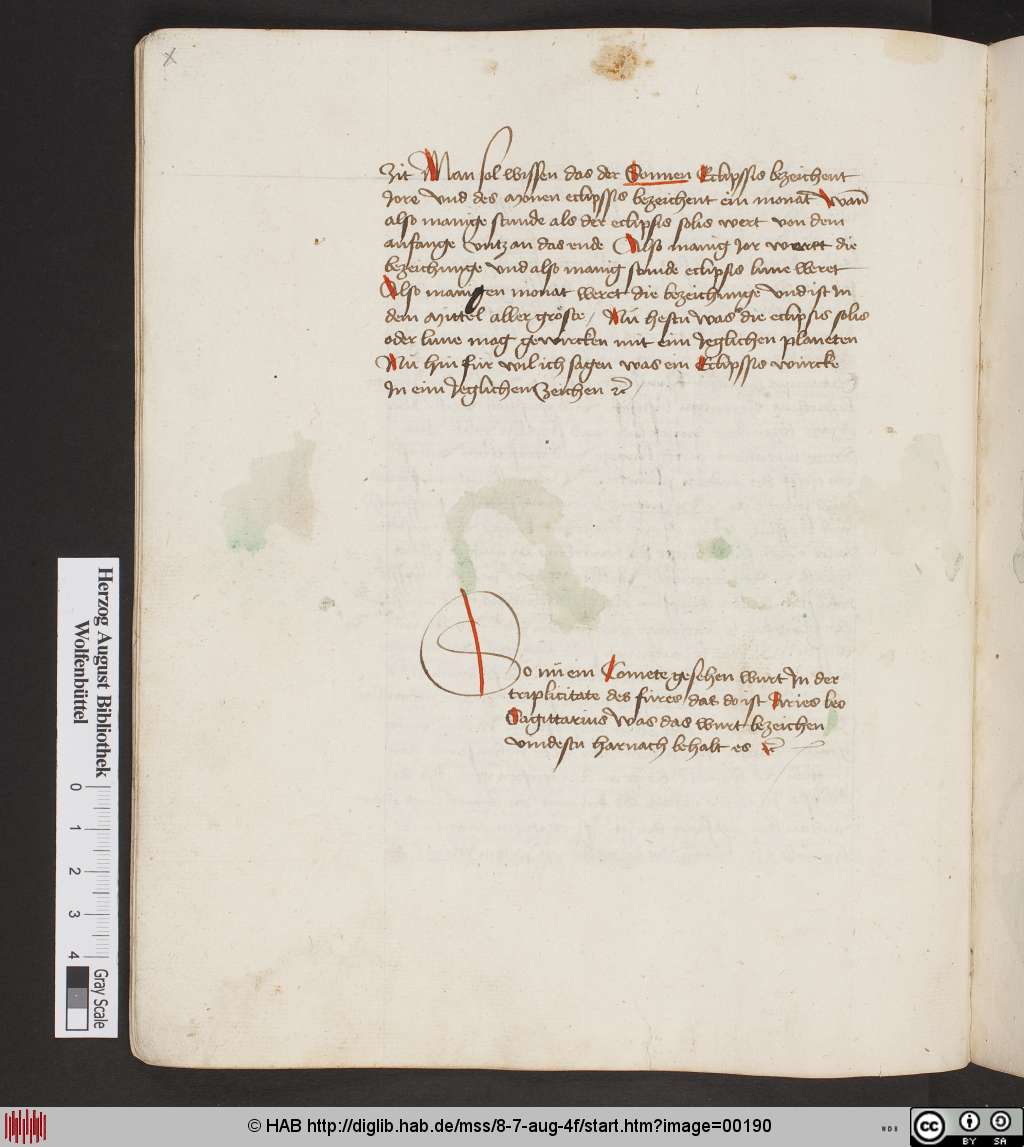 x
zit Man sol wissen das der Sonnen Eclipssis bezeichent
Jore vnd des monen eclipssis bezeichent ein monat wañ
also manige stunde als der eclipsis solis wert von dem
anfange vntz an das ende Also manig Jor weret die
bezeichunge vnd also manig stunde eclipsis lune weret
Also manigen monat weret die bezeichunge vnd ist in
dem mittel aller gröste / Nü hestu was die eclipsis solis
oder lune mag gewürcken mit eim Jeglichen planeten
Nü hin für wil ich sagen was ein Eclipssis würcke
In eim Jeglichen Zeichen ꝛc̄ /
So nü ein Comete gesehen wurt In der
triplicitate des füres das do ist Aries leo
Sagittarius was das wurt bezeichen
vindestu harnach behalt es ꝛc̄
Herzog August Bibliothek
Wolfenbüttel
0 1 2 3 4
Gray Scale
© HAB http://diglib.hab.de/mss/8-7-aug-4f/start.htm?image=00190
WDB
cc BY SA